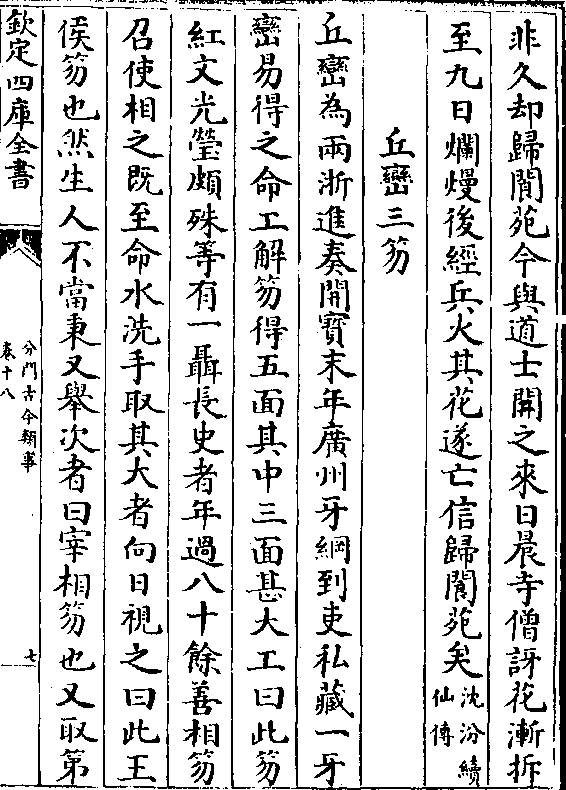 非久却歸閬苑今與道士開之來日晨寺僧訝花漸拆
至九日爛熳後經兵火其花遂亡信歸閬苑矣沈汾續仙傳
丘巒三笏
丘巒為兩浙進奏開寶末年廣州牙綱到吏私藏一牙
巒易得之命工解笏得五面其中三面甚大工曰此笏
紅文光瑩頗殊等有一聶長史者年過八十餘善相笏
召使相之既至命水洗手取其大者向日視之曰此王
侯笏也然生人不當秉又舉次者曰宰相笏也又取第
欽定四庫全書
分門古今類事
卷十八
七